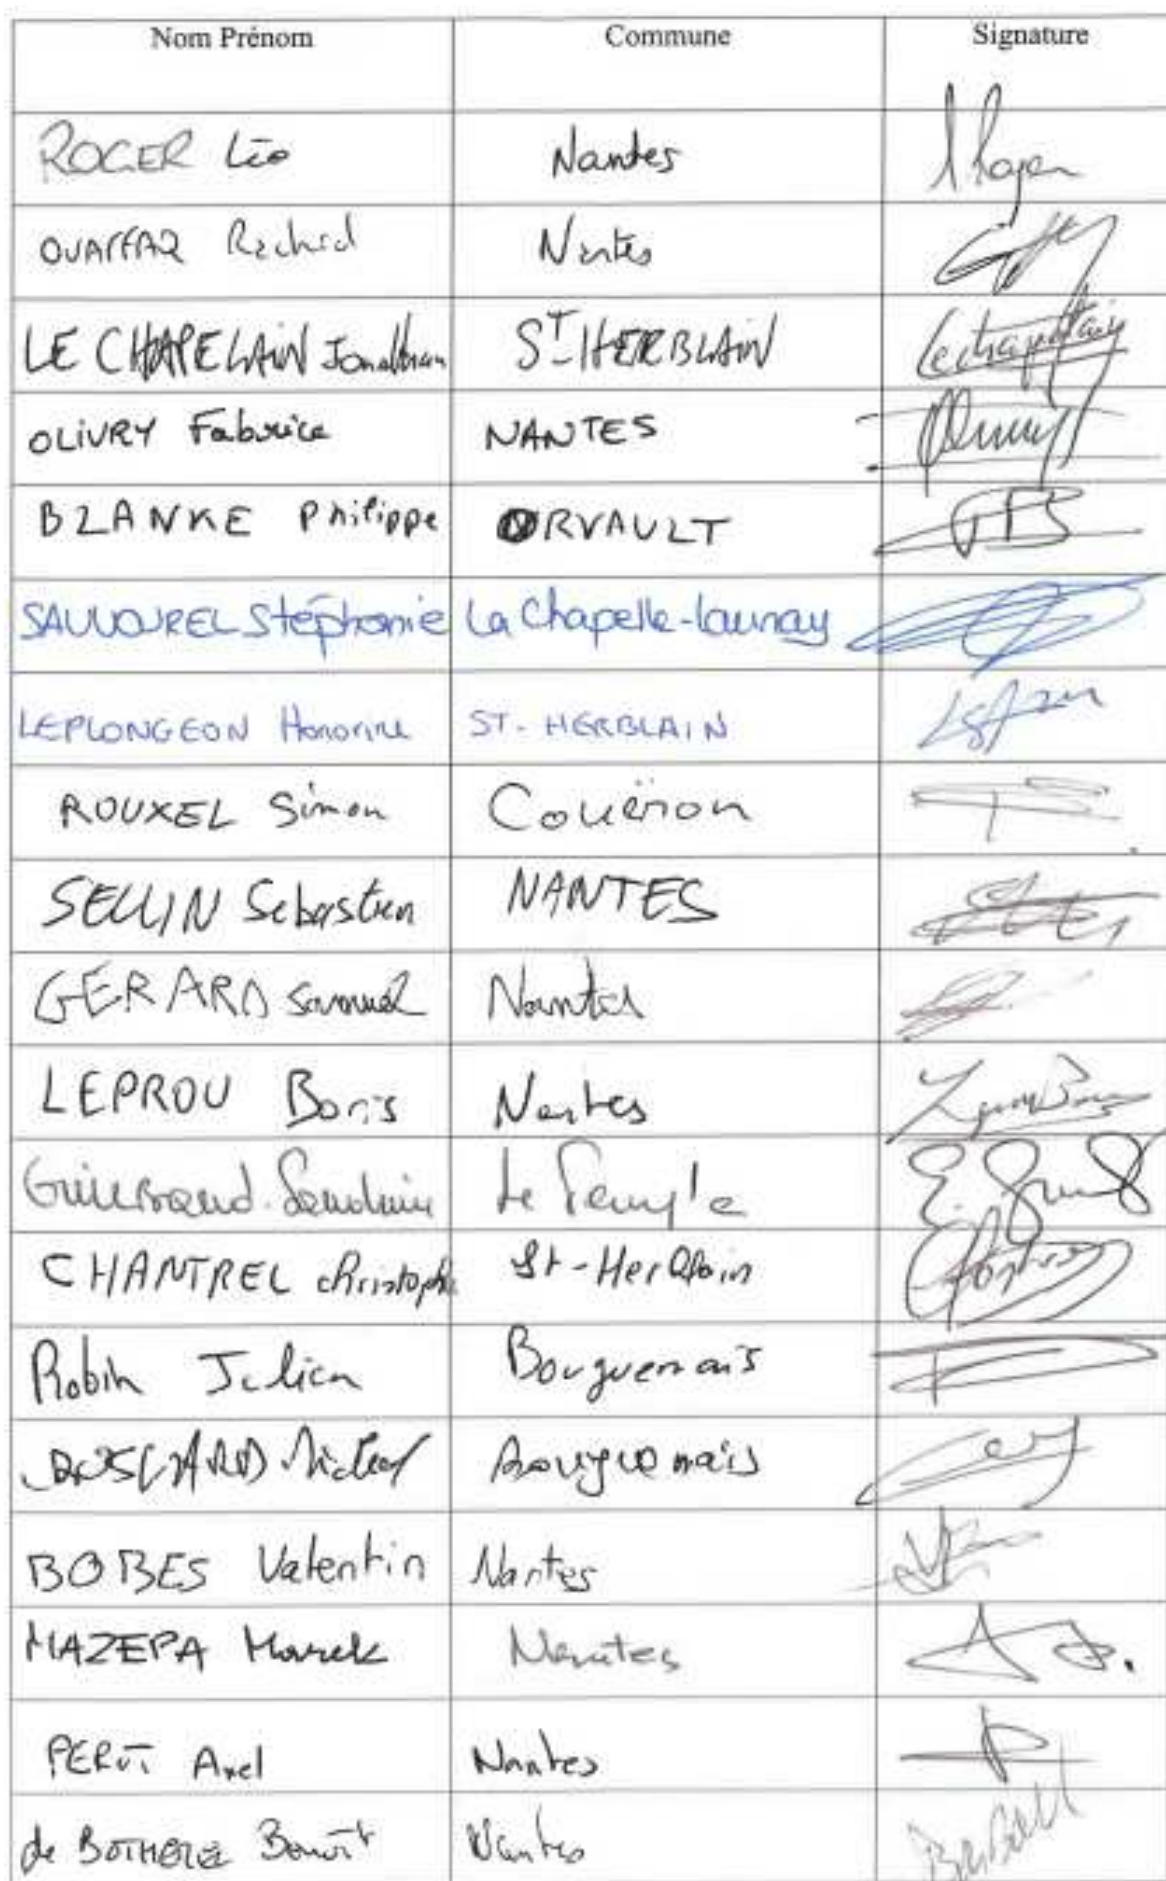 Nom Prénom Commune Signature
ROGER Léo Nantes
OUAFFAQ Rachid Nantes
LE CHAPELAIN Jonathan ST-HERBLAIN Lechapelain
OLIVRY Fabrice NANTES
BLANKE Philippe ORVAULT
SAUVOUREL Stéphanie La Chapelle-Launay
LEPLONGEON Honorine ST-HERBLAIN
ROUXEL Simon Couëron
SELLIN Sebastien NANTES
GERARD Samuel Nantes
LEPROU Boris Nantes
Le Temple
CHANTREL Christophe St-Herblain
Robin Julien Bouguenais
Bouguenais
BOBES Valentin Nantes
MAZEPA Marek Nantes
PERUT Axel Nantes
de BOTHEREL Benoît Nantes